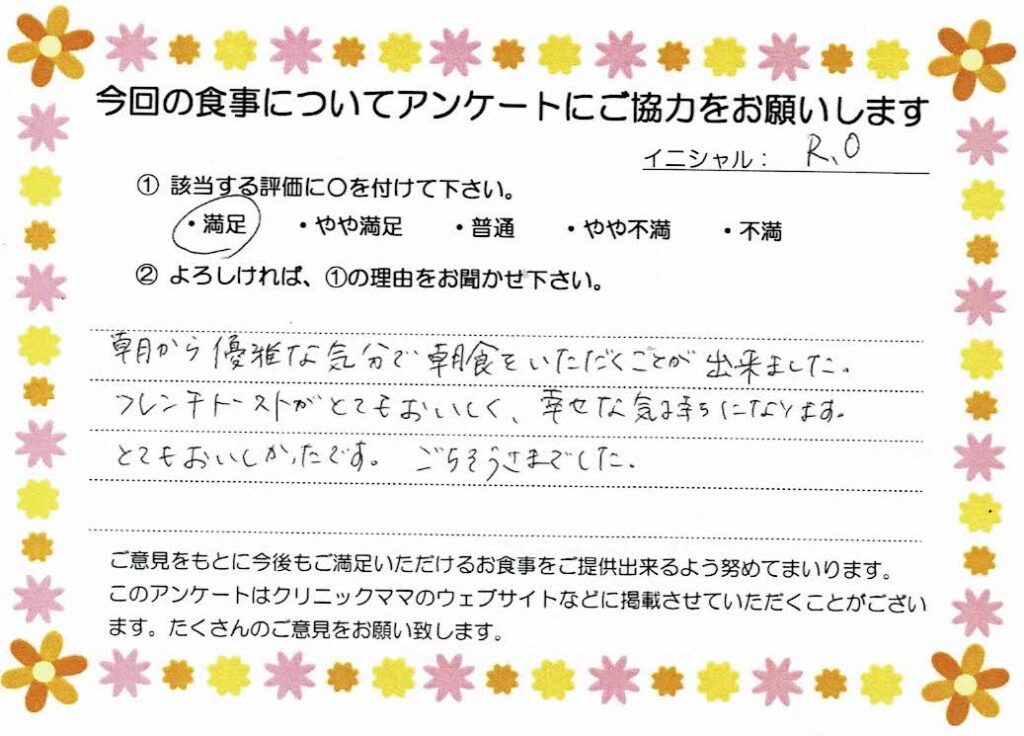 今回の食事についてアンケートにご協力をお願いします
イニシャル： R、O
① 該当する評価に〇を付けて下さい。
・満足 ・やや満足 ・普通 ・やや不満 ・不満
② よろしければ、①の理由をお聞かせ下さい。
朝から優雅な気分で朝食をいただくことが出来ました。
フレンチトーストがとてもおいしく、幸せな気持ちになります。
とてもおいしかったです。 ごちそうさまでした。
ご意見をもとに今後もご満足いただけるお食事をご提供出来るよう努めてまいります。
このアンケートはクリニックママのウェブサイトなどに掲載させていただくことがござい
ます。たくさんのご意見をお願い致します。